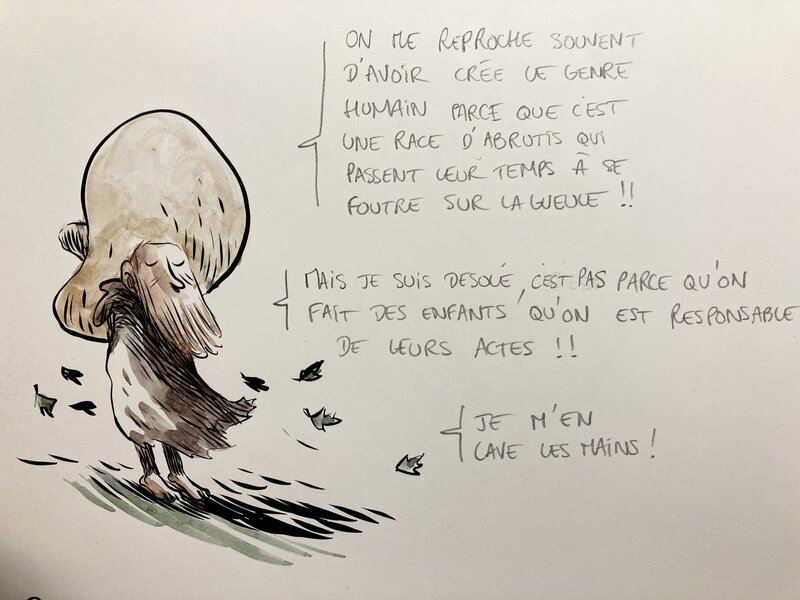 ON ME REPROCHE SOUVENT
D'AVOIR CRÉE LE GENRE
HUMAIN PARCE QUE C'EST
UNE RACE D'ABRUTIS QUI
PASSENT LEUR TEMPS À SE
FOUTRE SUR LA GUEULE !!
MAIS JE SUIS DESOLÉ, C'EST PAS PARCE QU'ON
FAIT DES ENFANTS QU'ON EST RESPONSABLE
DE LEURS ACTES !!
JE M'EN
LAVE LES MAINS !